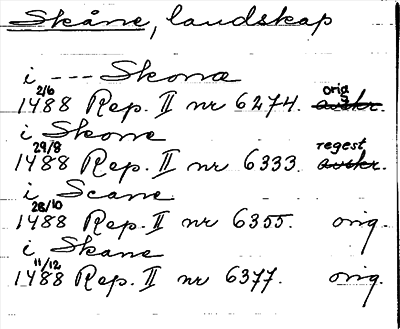 Skåne, landskap
i --- Skonæ
1488 2/6 Rep. II nr 6274. orig avskr.
i Skone
1488 29/8 Rep. II nr 6333. regest avskr.
i Scane
1488 28/10 Rep. II nr 6355. orig.
i Skane
1488 11/12 Rep. II nr 6377. orig.